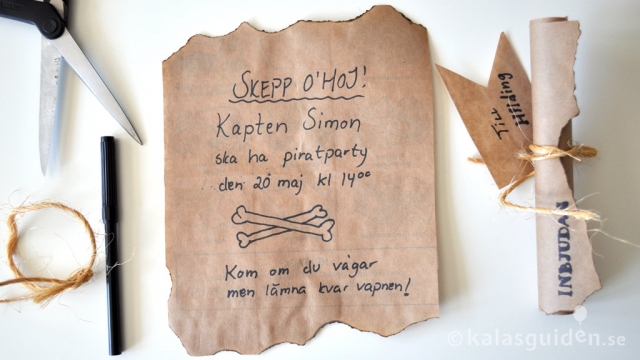 SKEPP O'HOJ!
Kapten Simon
ska ha piratparty
den 20 maj kl 14⁰⁰
Kom om du vågar
men lämna kvar vapnen!
Till
Hilding
INBJUDAN
©kalasguiden.se